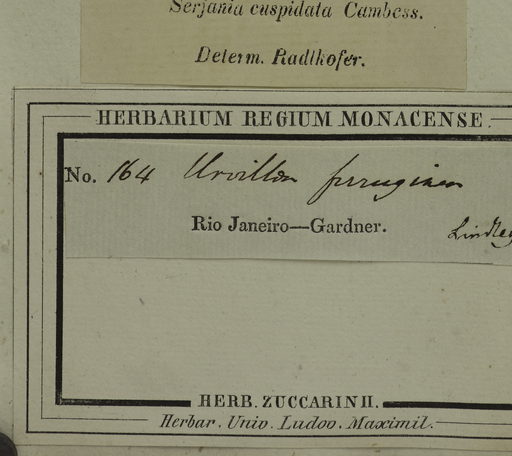 Serjania cuspidata Cambess.
Determ. Radlkofer.
HERBARIUM REGIUM MONACENSE.
No. 164 Urvillea ferruginea
Rio Janeiro—Gardner.
Lindley
HERB. ZUCCARINII.
Herbar. Univ. Ludov. Maximil.